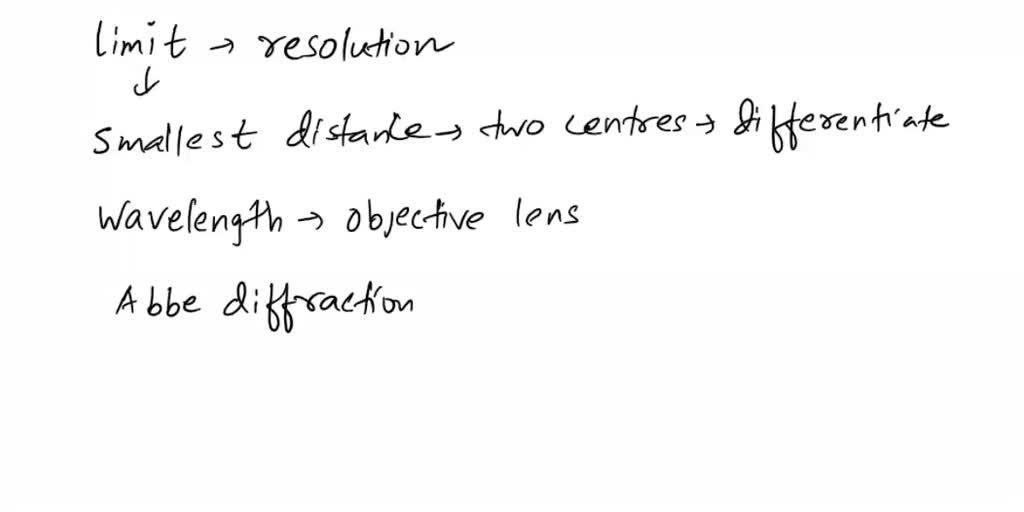 limit → resolution
↓
Smallest distance → two centres → differentiate
Wavelength → objective lens
Abbe diffraction